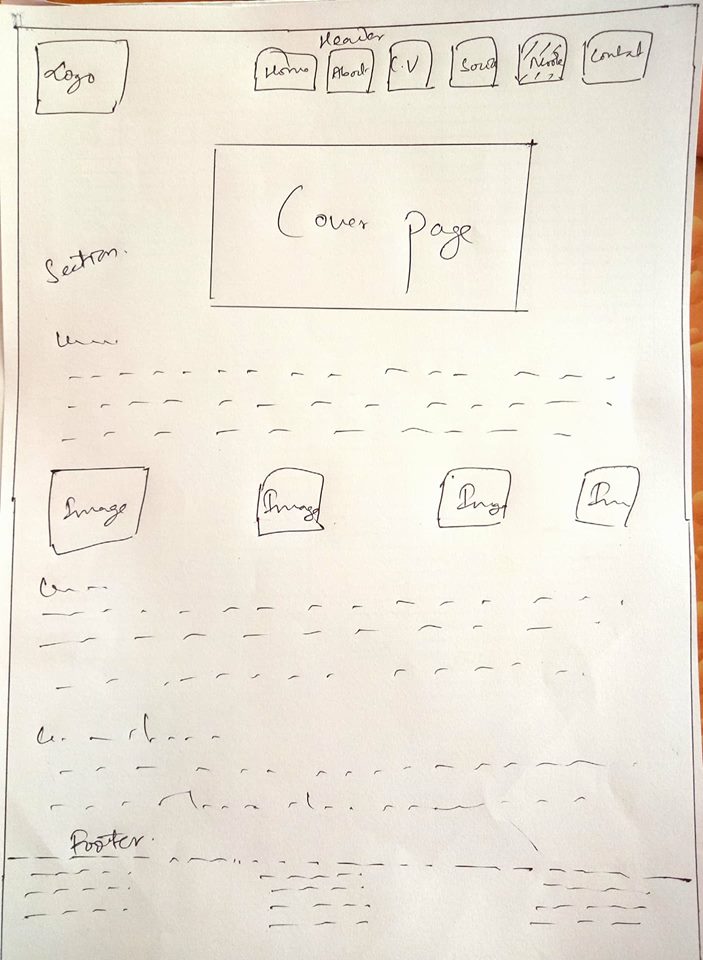 Header
Logo Home About C.V Contact
Cover page
Section.
Image Image Img Im
Footer.